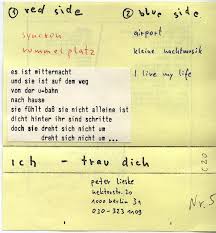 ① red side
② blue side
syncron
rummelplatz
airport
kleine nachtmusik
I live my life
es ist mitternacht
und sie ist auf dem weg
von der u-bahn
nach hause
sie fühlt daß sie nicht alleine ist
dicht hinter ihr sind schritte
doch sie dreht sich nicht um
dreht sich nicht um ...
ich - trau dich
peter lieske
1000 berlin 31
030-323 1103
C20
Nr. 5